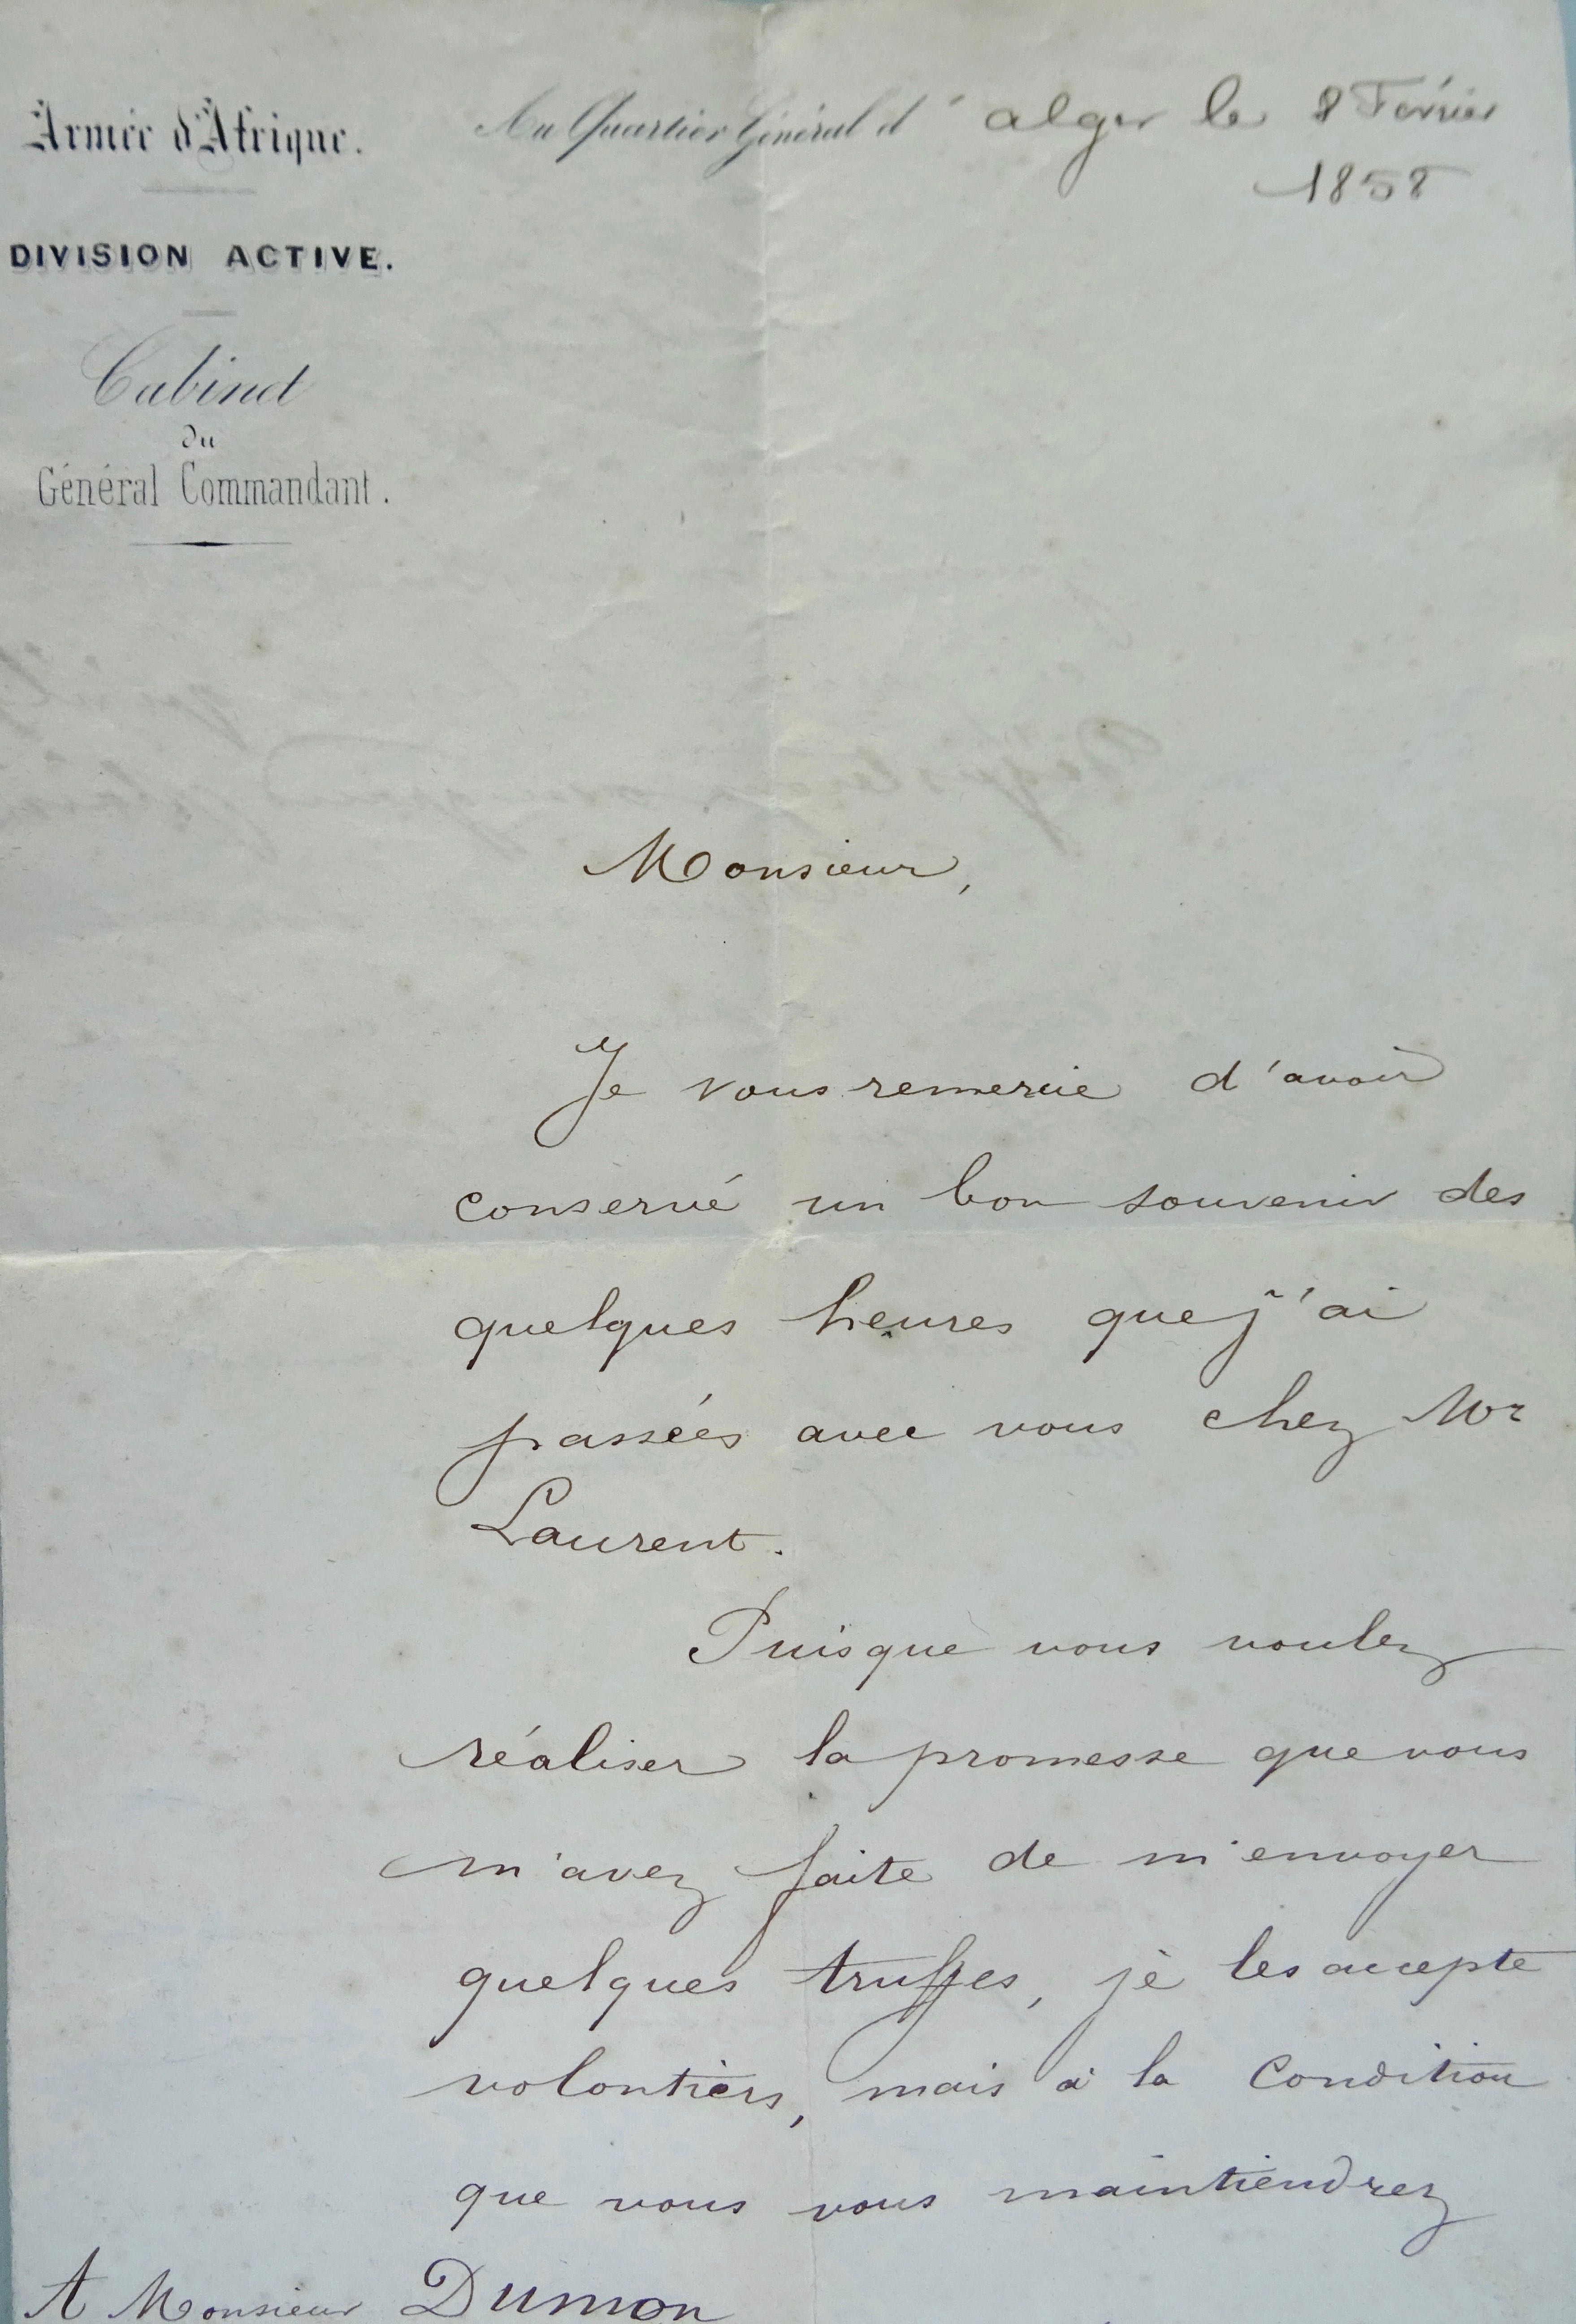 Armée d'Afrique.
DIVISION ACTIVE.
Cabinet
du
Général Commandant.
Au Quartier Général d' alger le 8 Fevrier
1858
Monsieur,
Je vous remercie d'avoir
conservé un bon souvenir des
quelques heures que j'ai
passées avec vous chez Mr
Laurent.
Puisque vous voulez
réaliser la promesse que vous
m'avez faite de m'envoyer
quelques truffes, je les accepte
volontiers, mais à la Condition
que vous vous maintiendrez
A Monsieur Dumon